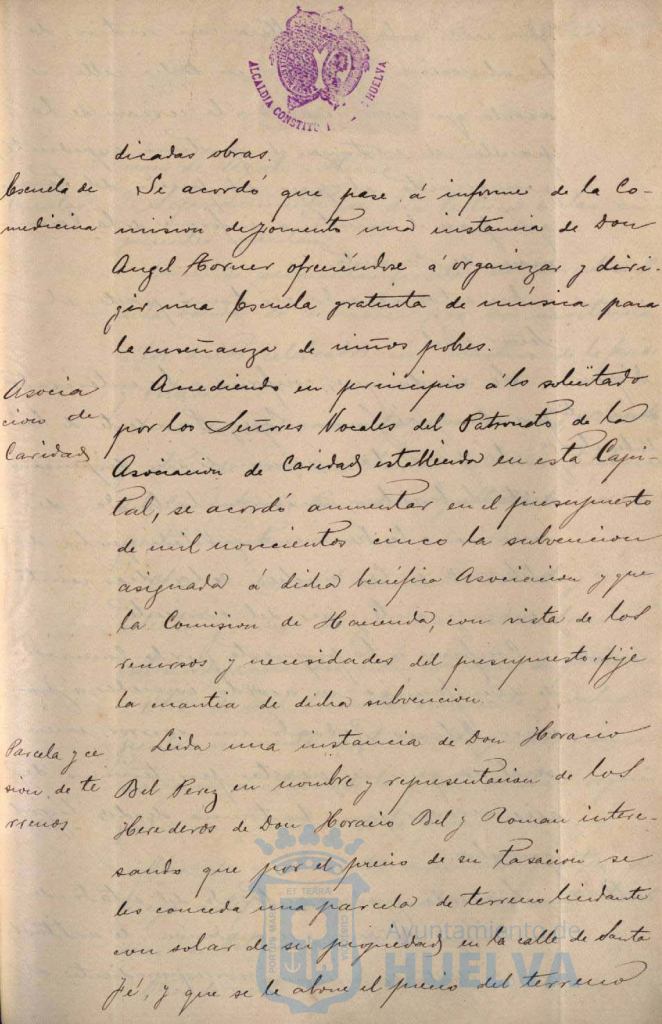 ALCALDIA CONSTITU HUELVA
dicadas obras.
Escuela de
medicina
Se acordó que pase á informe de la Co-
mision de fomento una instancia de Don
Angel ofreciéndose á organizar y diri-
gir una Escuela gratuita de música para
la enseñanza de niños pobres.
Asocia
cion de
Caridad
Accediendo en principio á lo solicitado
por los Señores Vocales del Patronato de la
Asociacion de Caridad establecida en esta Capi-
tal, se acordó aumentar en el presupuesto
de mil novecientos cinco la subvencion
asignada á dicha benéfica Asociacion y que
la Comision de Hacienda, con vista de los
recursos y necesidades del presupuesto, fije
la cuantia de dicha subvencion.
Parcela y ce
sion de te
rrenos
Leida una instancia de Don Horacio
Bel Perez en nombre y representacion de los
Herederos de Don Horacio Bel y Roman intere-
sando que por el precio de su tasacion se
les conceda una parcela de terreno lindante
con solar de su propiedad en la calle de Santa
Fé, y que se le abone el precio del terreno
Ayuntamiento de
HUELVA